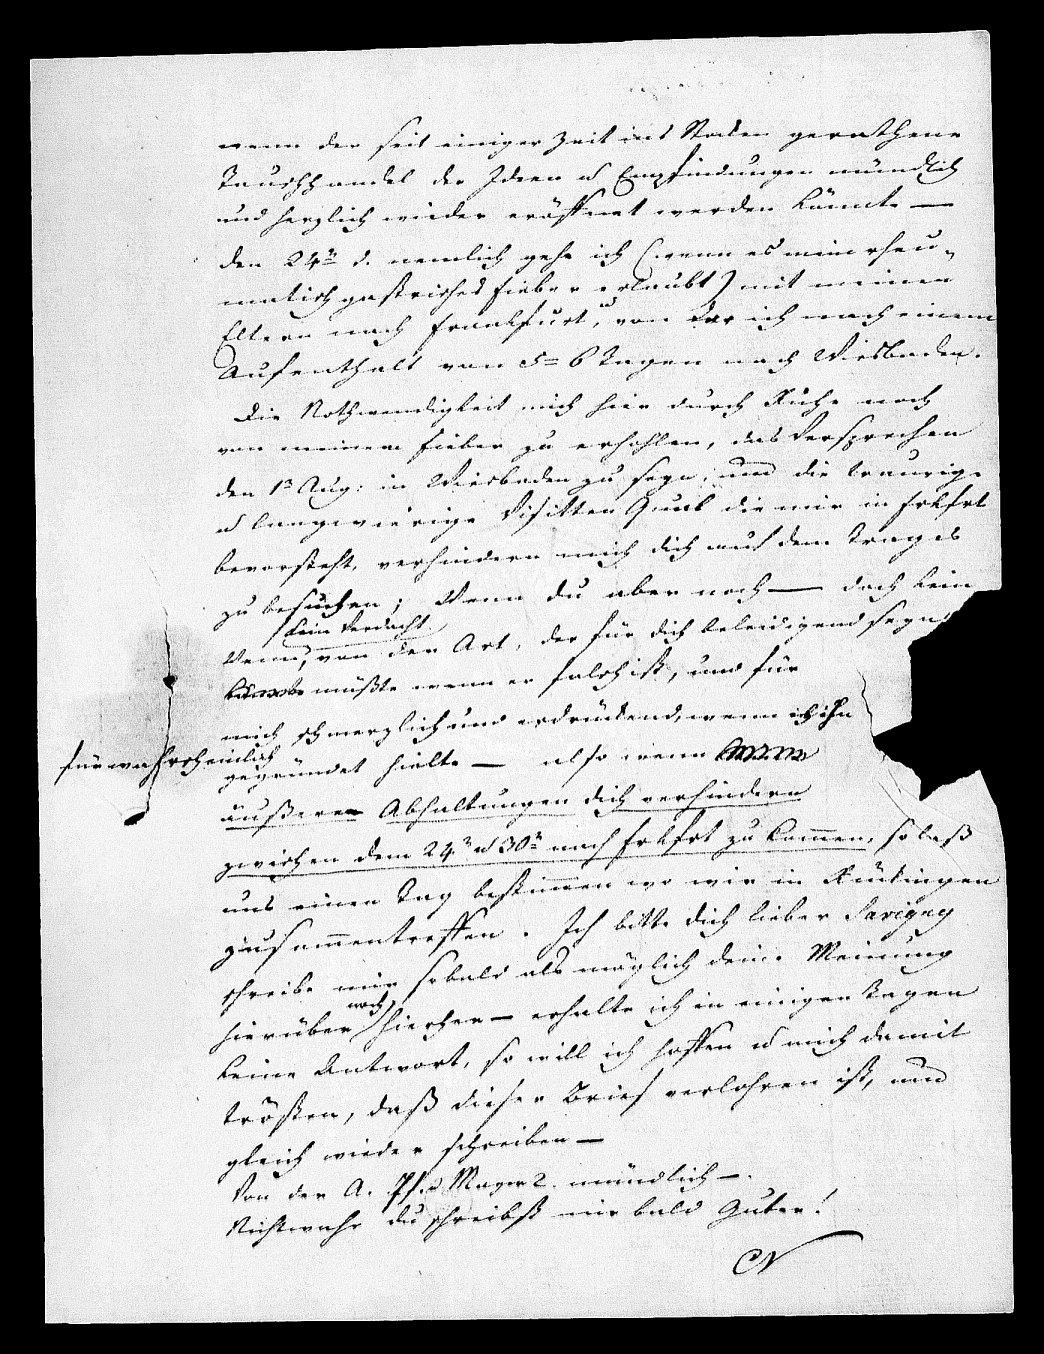 wenn der seit einiger Zeit ins Stocken gerathene
Tauschhandel der Ideen u Empfindungen mündlich
und herzlich wieder eröffnet werden könnte —
den 24n d. nemlich gehe ich (wenn es mein rheu-
matisch gastrisches Fieber erlaubt) mit meinen
Eltern nach Frankfurt, u von da ich nach einem
Aufenthalt von 5-6 Tagen nach Wiesbaden.
Die Nothwendigkeit mich hier durch Ruhe noch
von meinem Fieber zu erhohlen, das Versprechen
den 1n Aug: in Wiesbaden zu seyn, und die traurige
u langwierige Visitten Quaal die mir in Frkfrt
bevorsteht, verhindern mich dich auf dem Trages
zu besuchen; Wenn du aber noch — doch kein
kein Verdacht
Wenn, von der Art, der für dich beleidigend seyn
müßte wenn er falsch ist, und für
mich schmerzlich und erdrückend, wenn ich ihn
für wahrscheinlich
gegründet hielte — also wenn
äußere Abhaltungen dich verhindern
zwischen dem 24n u 30n nach Frkfrt zu kommen, so laß
uns einen Tag bestimmen wo wir in Rückingen
zusammentreffen. Ich bitte dich lieber Savigny
schreibe mir sobald als möglich deine Meinung
hierüber noch hierher — erhalte ich in einigen Tagen
keine Antwort, so will ich hoffen u mich damit
trösten, daß dieser Brief verlohren ist, und
gleich wieder schreiben —
Von der A. mündlich —.
Nichtwahr du schreibst mir bald Guter!
CN